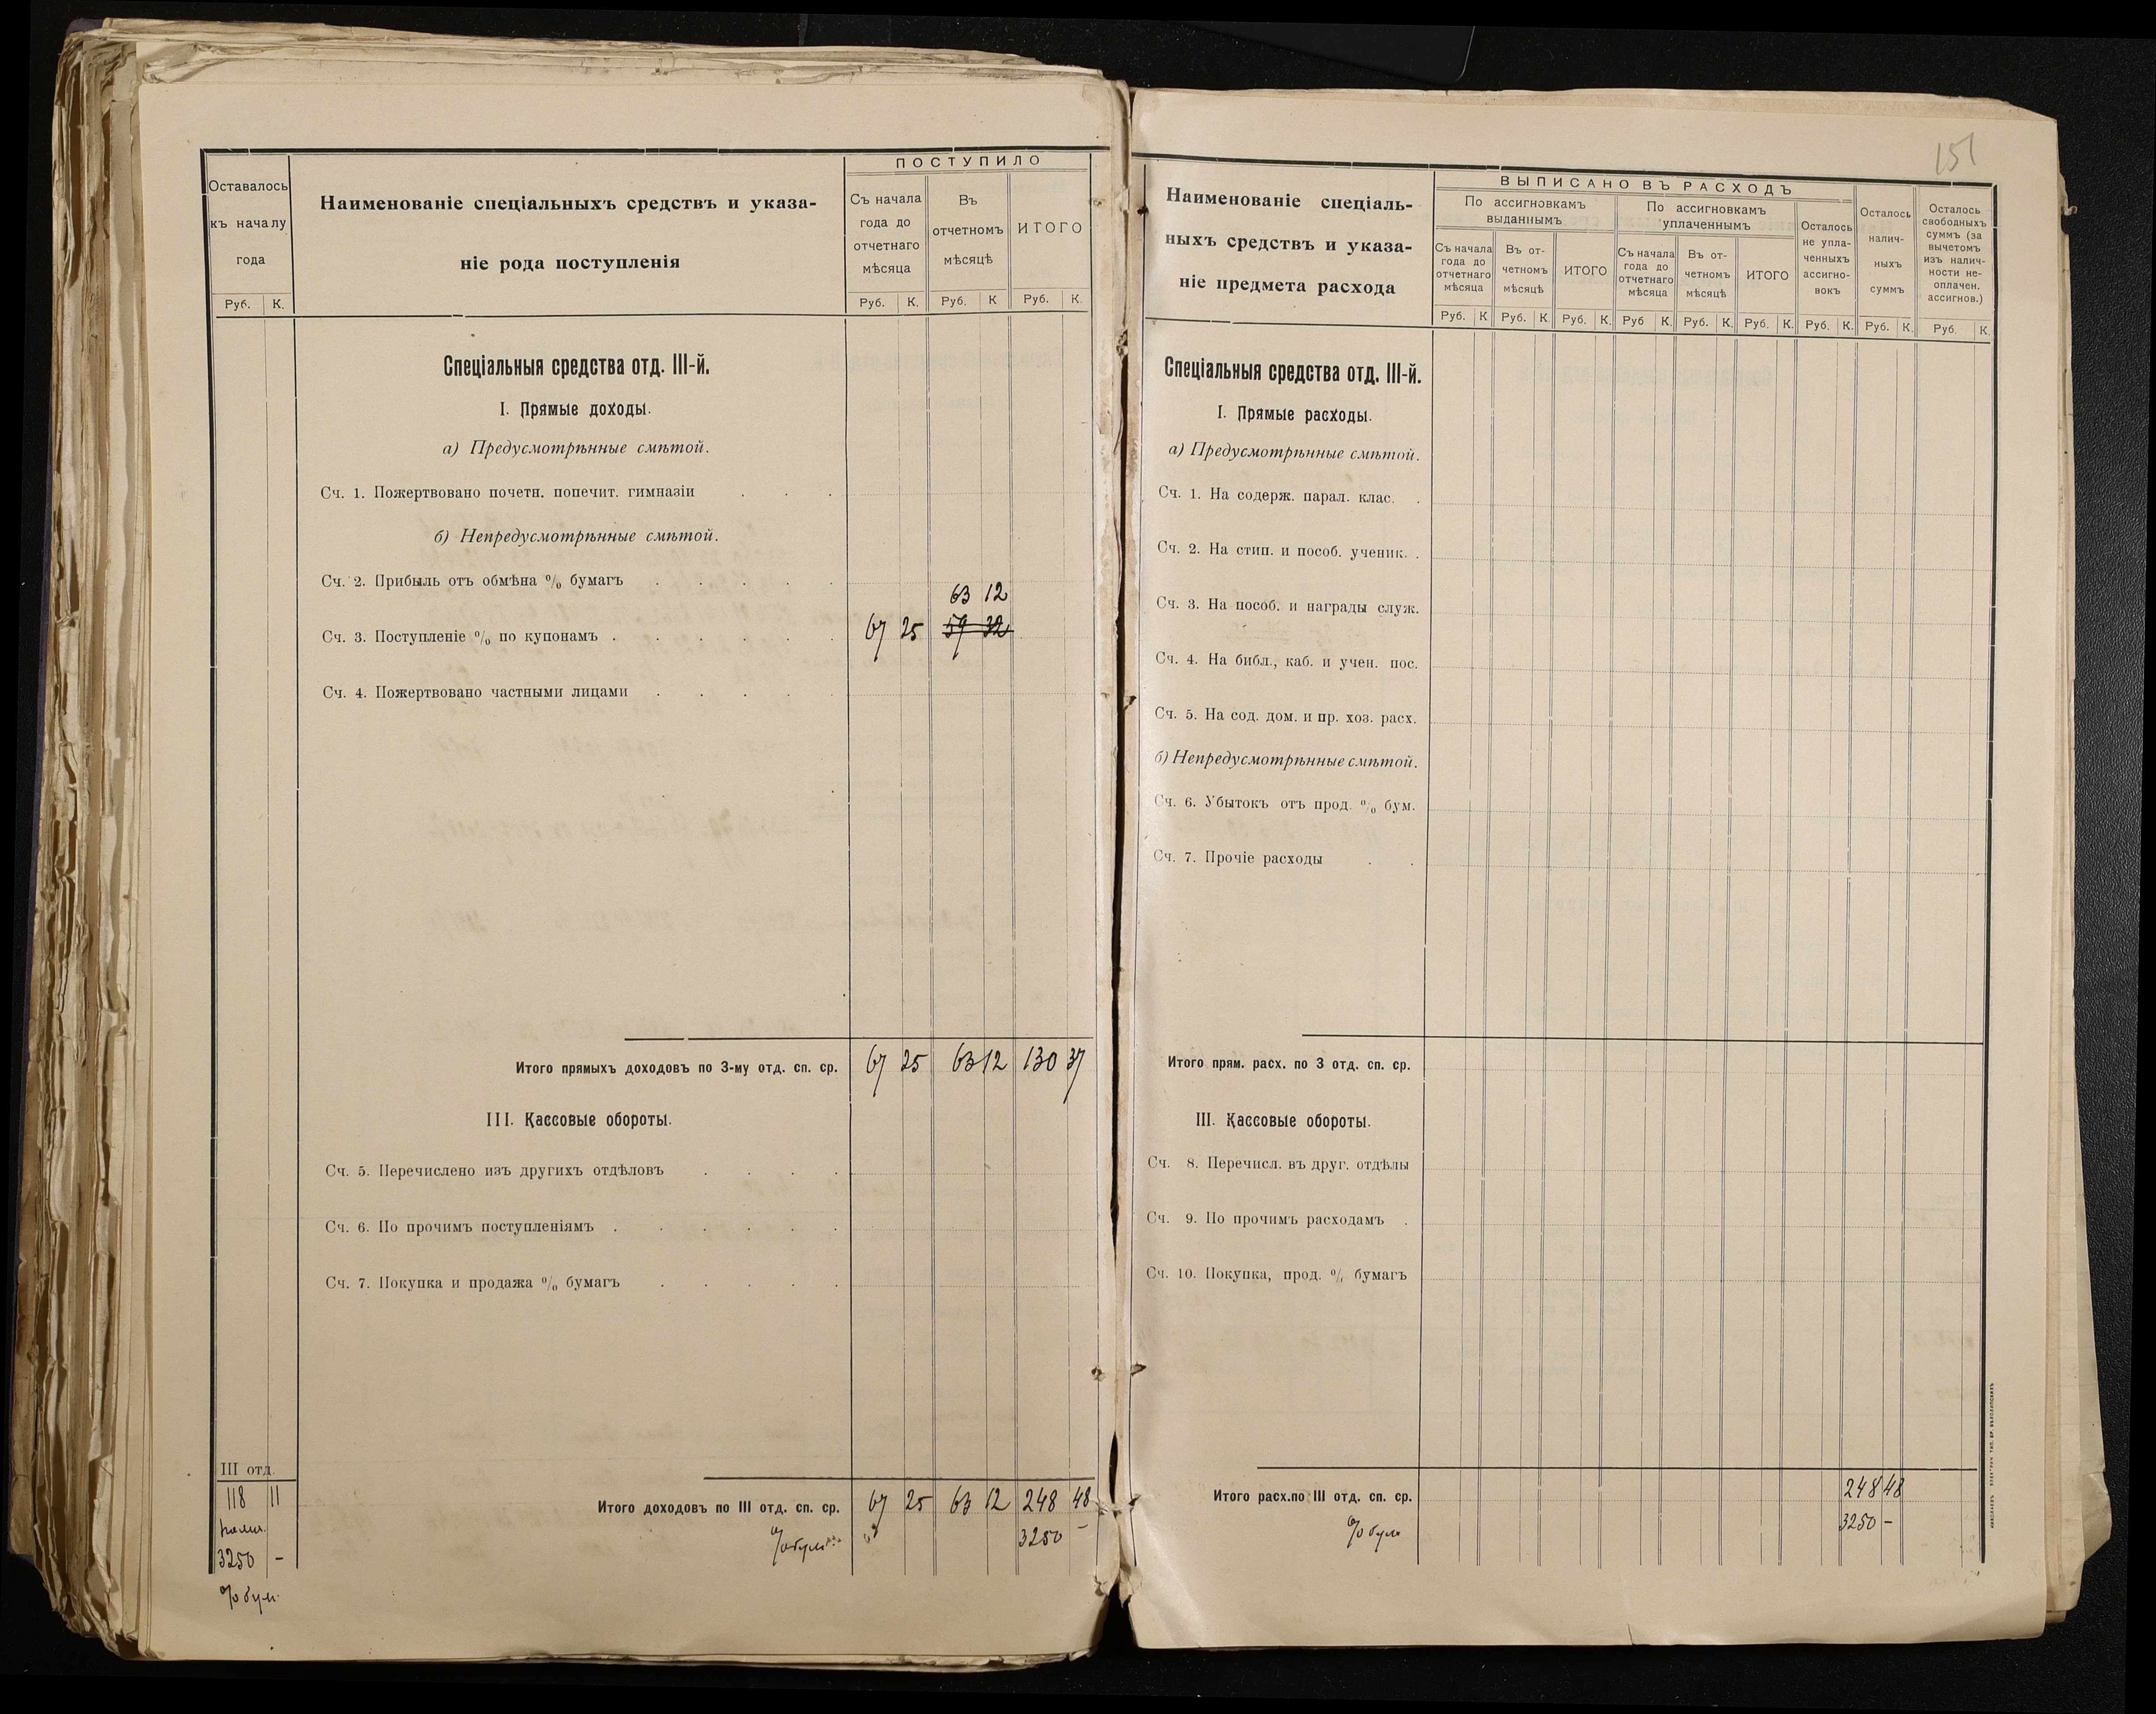 ПОСТУПИЛО
Оставалось
къ началу
года
Наименованіе спеціальныхъ средствъ и указа-
ніе рода поступленія
Съ начала
года до
отчетнаго
мѣсяца
Въ
отчетномъ
мѣсяцѣ
ИТОГО
Руб. К. Руб. К. Руб. К Руб. К.
Спеціальныя средства отд. III-й.
I. Прямые доходы.
а) Предусмотрѣнные смѣтой.
Сч. 1. Пожертвовано почетн. попечит. гимназіи . . .
б) Непредусмотрѣнные смѣтой.
Сч. 2. Прибыль отъ обмѣна % бумагъ . . . . .
63 12
Сч. 3. Поступленіе % по купонамъ . . . . . . 67 25 59 32
Сч. 4. Пожертвовано частными лицами . . . . .
Итого прямыхъ доходовъ по 3-му отд. сп. ср. 67 25 63 12 130 37
III. Кассовые обороты.
Сч. 5. Перечислено изъ другихъ отдѣловъ . . . .
Сч. 6. По прочимъ поступленіямъ . . . . . .
Сч. 7. Покупка и продажа % бумагъ . . . . .
III отд.
118 11
Итого доходовъ по III отд. сп. ср. 67 25 63 12 248 48
нали.
% бум. 3250 –
3250 –
% бум.
151
Наименованіе спеціаль-
ныхъ средствъ и указа-
ніе предмета расхода
ВЫПИСАНО ВЪ РАСХОДЪ
По ассигновкамъ
выданнымъ
По ассигновкамъ
уплаченнымъ
Съ начала
года до
отчетнаго
мѣсяца
Въ от-
четномъ
мѣсяцѣ
ИТОГО
Съ начала
года до
отчетнаго
мѣсяца
Въ от-
четномъ
мѣсяцѣ
ИТОГО
Осталось
не упла-
ченныхъ
ассигно-
вокъ
Осталось
налич-
ныхъ
суммъ
Осталось
свободныхъ
суммъ (за
вычетомъ
изъ налич-
ности не-
оплачен.
ассигнов.)
Руб. К Руб. К. Руб. К. Руб К. Руб. К. Руб. К. Руб. К. Руб. К. Руб. К.
Спеціальныя средства отд. III-й.
I. Прямые расходы.
а) Предусмотрѣнные смѣтой.
Сч. 1. На содерж. парал. клас. .
Сч. 2. На стип. и пособ. ученик. .
Сч. 3. На пособ. и награды служ.
Сч. 4. На библ., каб. и учен. пос.
Сч. 5. На сод. дом. и пр. хоз. расх.
б) Непредусмотрѣнные смѣтой.
Сч. 6. Убытокъ отъ прод. % бум.
Сч. 7. Прочіе расходы . .
Итого прям. расх. по 3 отд. сп. ср.
III. Кассовые обороты.
Сч. 8. Перечисл. въ друг. отдѣлы
Сч. 9. По прочимъ расходамъ .
Сч. 10. Покупка, прод. % бумагъ
Итого расх.по III отд. сп. ср. 248 48
% бум 3250 –